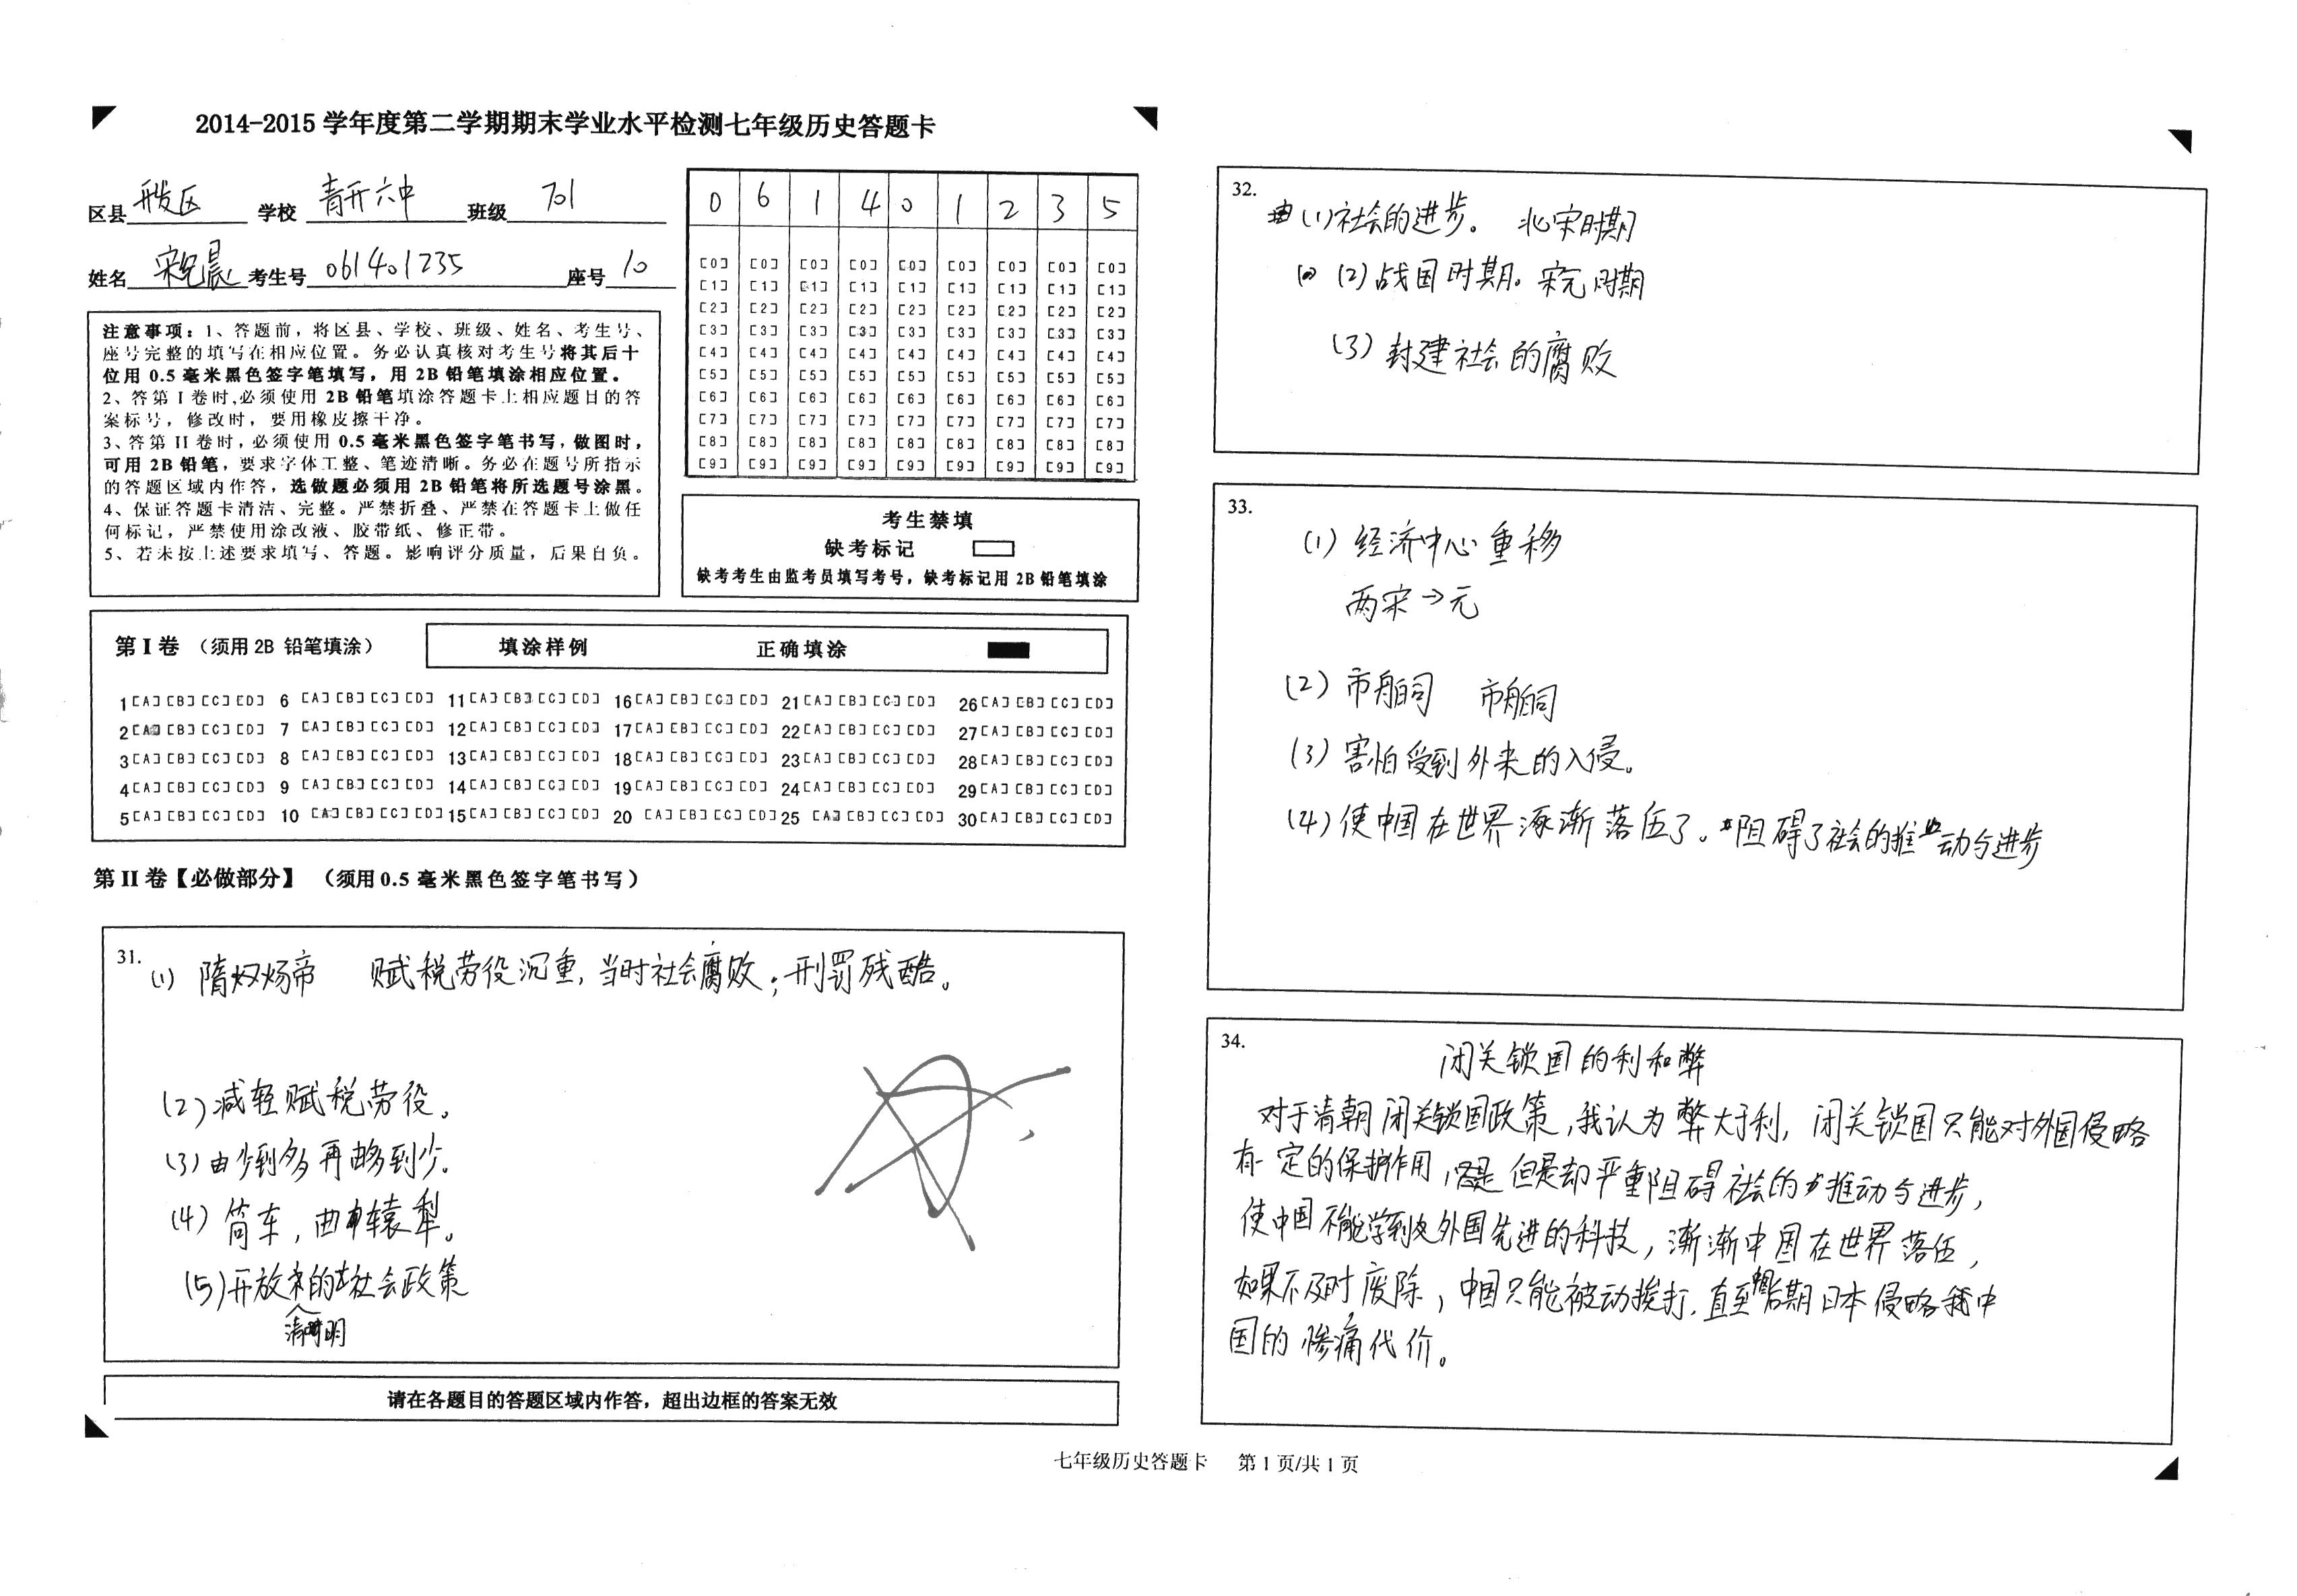 2014-2015 学年度第二学期期末学业水平检测七年级历史答题卡
区县 开发区 学校 青开六中 班级 701
姓名 宋 晨 考生号 061401235 座号 10
0 6 1 4 0 1 2 3 5
[0] [0] [0] [0] [0] [0] [0] [0] [0]
[1] [1] [1] [1] [1] [1] [1] [1] [1]
[2] [2] [2] [2] [2] [2] [2] [2] [2]
[3] [3] [3] [3] [3] [3] [3] [3] [3]
[4] [4] [4] [4] [4] [4] [4] [4] [4]
[5] [5] [5] [5] [5] [5] [5] [5] [5]
[6] [6] [6] [6] [6] [6] [6] [6] [6]
[7] [7] [7] [7] [7] [7] [7] [7] [7]
[8] [8] [8] [8] [8] [8] [8] [8] [8]
[9] [9] [9] [9] [9] [9] [9] [9] [9]
注意事项：1、答题前，将区县、学校、班级、姓名、考生号、
座号完整的填写在相应位置。务必认真核对考生号将其后十
位用 0.5 毫米黑色签字笔填写，用 2B 铅笔填涂相应位置。
2、答第 I 卷时,必须使用 2B 铅笔填涂答题卡上相应题目的答
案标号，修改时，要用橡皮擦干净。
3、答第 II 卷时，必须使用 0.5 毫米黑色签字笔书写，做图时，
可用 2B 铅笔，要求字体工整、笔迹清晰。务必在题号所指示
的答题区域内作答，选做题必须用 2B 铅笔将所选题号涂黑。
4、保证答题卡清洁、完整。严禁折叠、严禁在答题卡上做任
何标记，严禁使用涂改液、胶带纸、修正带。
5、若未按上述要求填写、答题。影响评分质量，后果自负。
考生禁填
缺考标记
缺考考生由监考员填写考号，缺考标记用 2B 铅笔填涂
第 I 卷 （须用 2B 铅笔填涂） 填涂样例 正确填涂
1 [A] [B] [C] [D] 6 [A] [B] [C] [D] 11 [A] [B] [C] [D] 16 [A] [B] [C] [D] 21 [A] [B] [C] [D] 26 [A] [B] [C] [D]
2 [A] [B] [C] [D] 7 [A] [B] [C] [D] 12 [A] [B] [C] [D] 17 [A] [B] [C] [D] 22 [A] [B] [C] [D] 27 [A] [B] [C] [D]
3 [A] [B] [C] [D] 8 [A] [B] [C] [D] 13 [A] [B] [C] [D] 18 [A] [B] [C] [D] 23 [A] [B] [C] [D] 28 [A] [B] [C] [D]
4 [A] [B] [C] [D] 9 [A] [B] [C] [D] 14 [A] [B] [C] [D] 19 [A] [B] [C] [D] 24 [A] [B] [C] [D] 29 [A] [B] [C] [D]
5 [A] [B] [C] [D] 10 [A] [B] [C] [D] 15 [A] [B] [C] [D] 20 [A] [B] [C] [D] 25 [A] [B] [C] [D] 30 [A] [B] [C] [D]
第 II 卷【必做部分】 （须用 0.5 毫米黑色签字笔书写）
31.
(1) 隋炀帝 赋税劳役沉重，当时社会腐败；刑罚残酷。
(2) 减轻赋税劳役。
(3) 由少到多再由多到少。
(4) 筒车，曲辕犁。
(5) 开放的社会政策
清明
请在各题目的答题区域内作答，超出边框的答案无效
32.
(1) 社会的进步。 北宋时期
(2) 战国时期。宋元时期
(3) 封建社会的腐败
33.
(1) 经济中心重移
两宋→元
(2) 市舶司 市舶司
(3) 害怕受到外来的入侵。
(4) 使中国在世界逐渐落伍了。阻碍了社会的推动与进步
34.
闭关锁国的利和弊
对于清朝闭关锁国政策，我认为弊大于利，闭关锁国只能对外国侵略
有一定的保护作用，但是却严重阻碍社会的推动与进步，
使中国不能学到外国先进的科技，渐渐中国在世界落伍，
如果不及时废除，中国只能被动挨打，直至后期日本侵略中
国的惨痛代价。
七年级历史答题卡 第 1 页/共 1 页